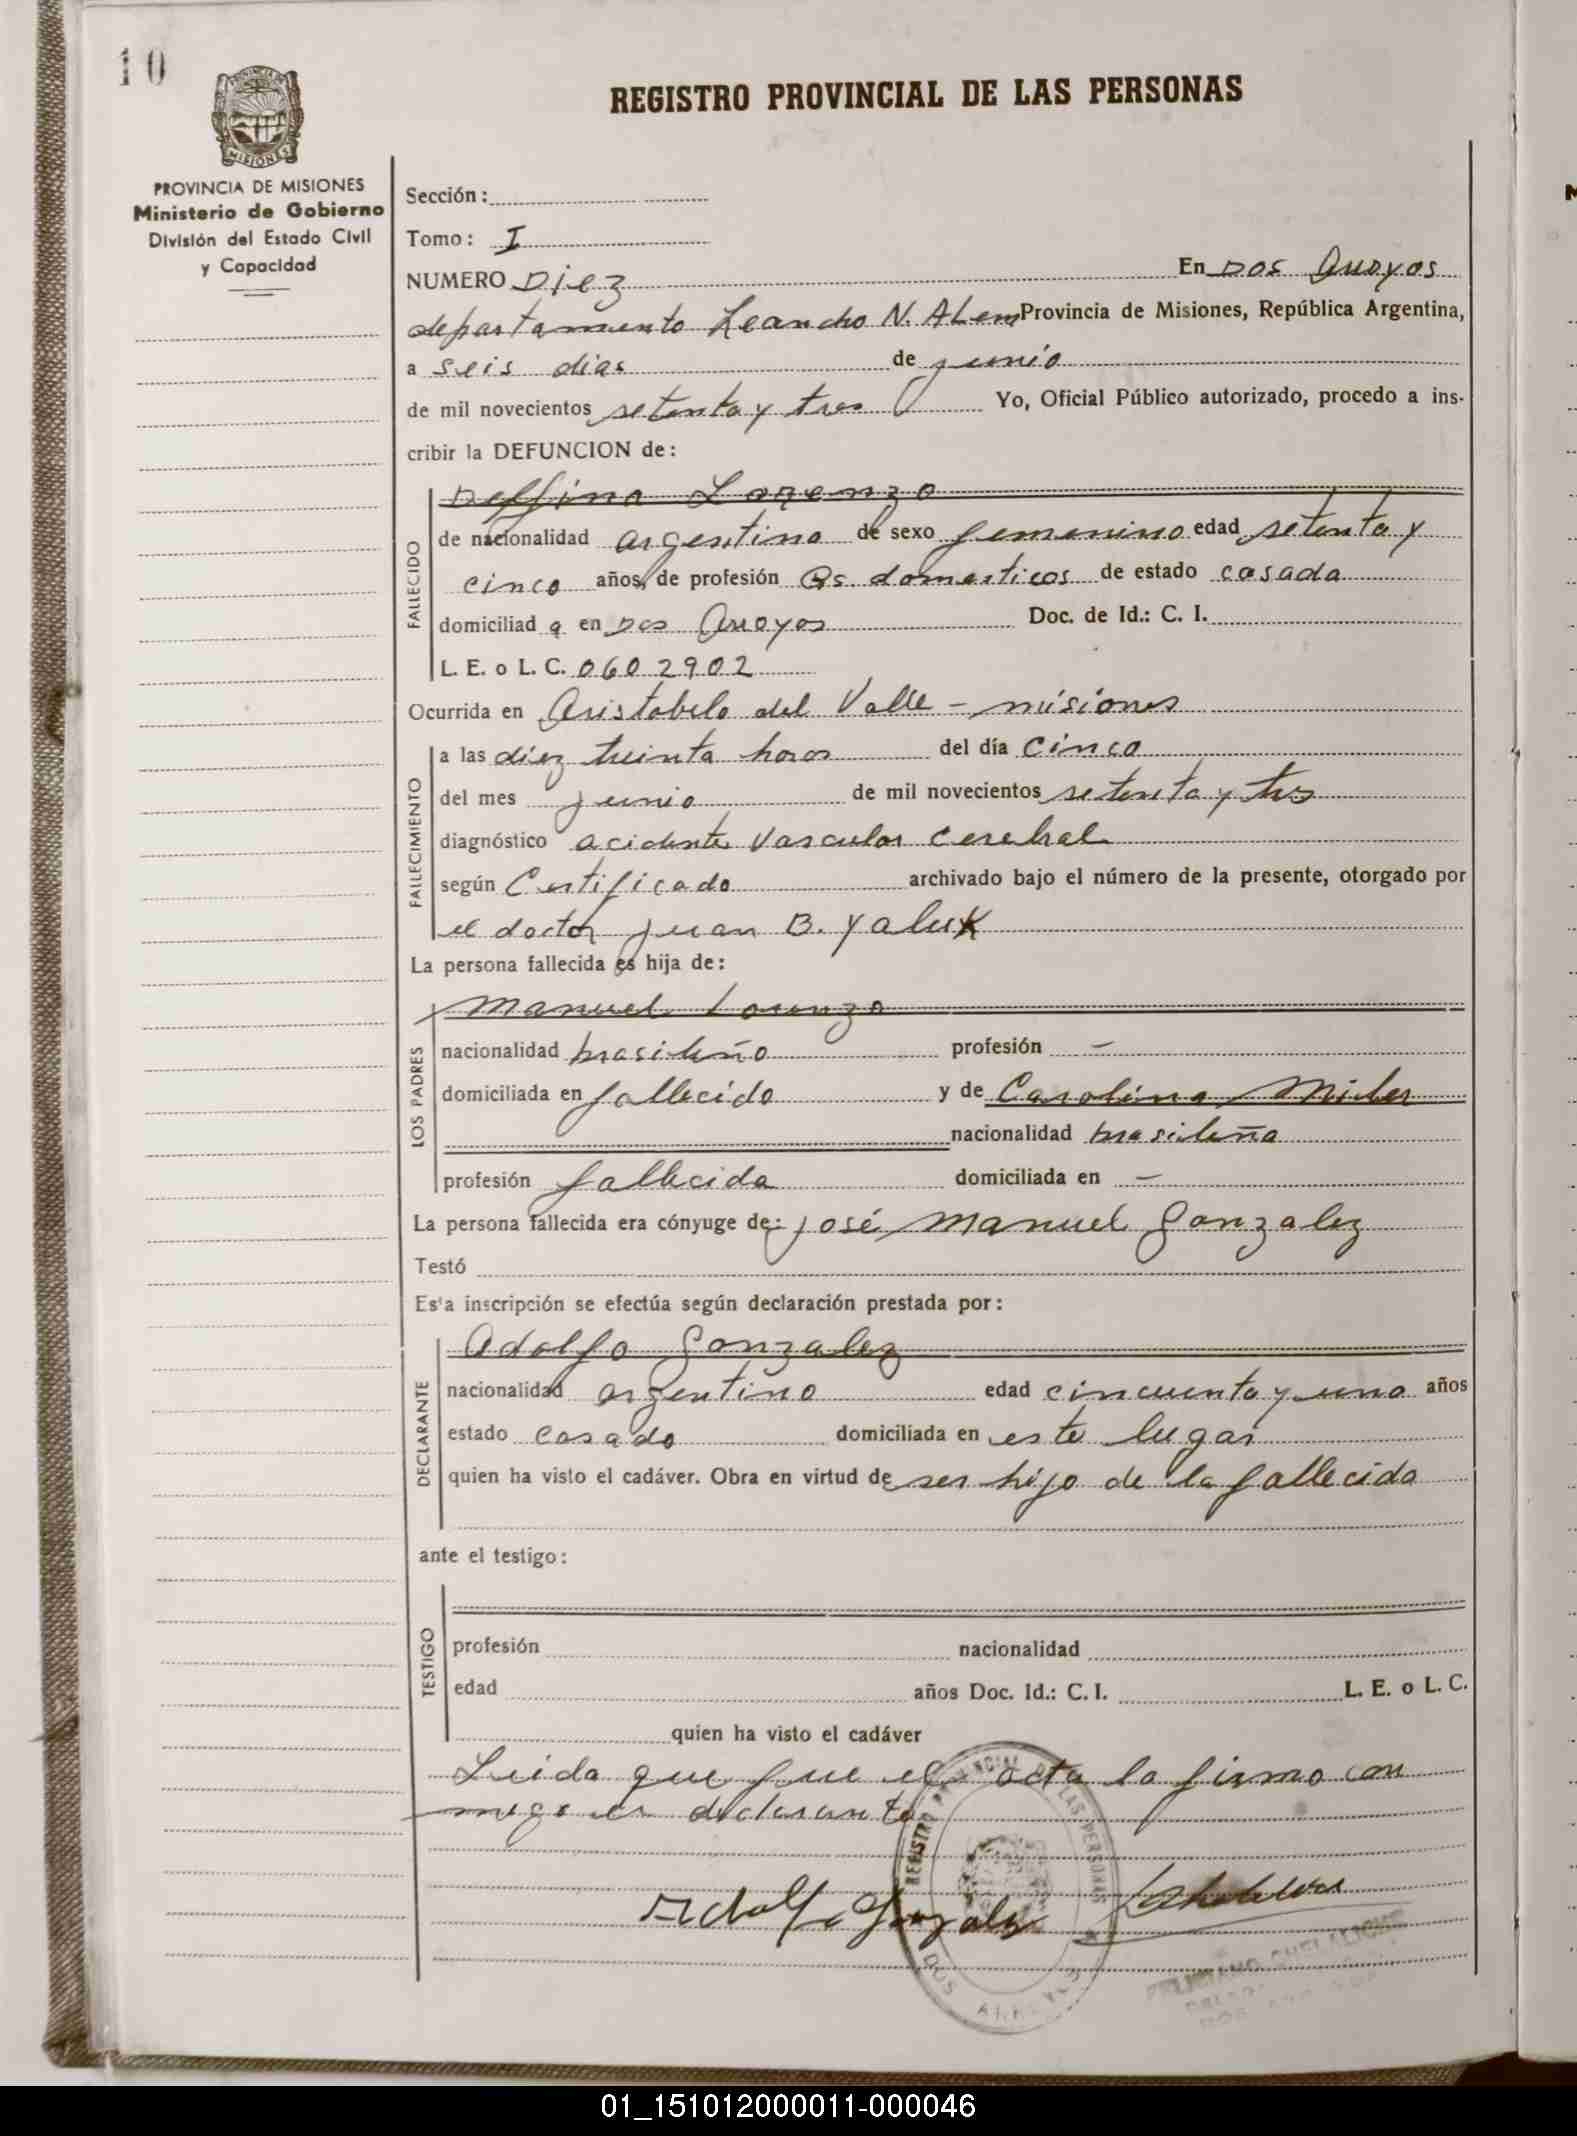 10
PROVINCIA DE MISIONES
MISIONES
PROVINCIA DE MISIONES
Ministerio de Gobierno
División del Estado Civil
y Capacidad
REGISTRO PROVINCIAL DE LAS PERSONAS
Sección:
Tomo: I
NUMERO Diez En Dos Arroyos
departamento Leandro N. ALem Provincia de Misiones, República Argentina,
a seis dias de junio
de mil novecientos setenta y tres Yo, Oficial Público autorizado, procedo a ins-
cribir la DEFUNCION de:
FALLECIDO
Delfina Lorenzo
de nacionalidad argentina de sexo femenino edad setenta y
cinco años, de profesión Qs domesticos de estado casada
domiciliad a en Dos Arroyos Doc. de Id.: C. I.
L. E. o L. C. 0602902
Ocurrida en Aristobulo del Valle - misiones
FALLECIMIENTO
a las diez treinta horas del día cinco
del mes junio de mil novecientos setenta y tres
diagnóstico acidente vascular cerebral
según Certificado archivado bajo el número de la presente, otorgado por
el doctor juan B. Yaluk
La persona fallecida es hija de:
LOS PADRES
manuel Lorenzo
nacionalidad brasileño profesión -
domiciliada en fallecido y de Carolina Miler
nacionalidad brasileña
profesión fallecida domiciliada en -
La persona fallecida era cónyuge de: josé manuel gonzalez
Testó
Esta inscripción se efectúa según declaración prestada por:
DECLARANTE
Adolfo gonzalez
nacionalidad argentino edad cincuenta y uno años
estado casado domiciliada en este lugar
quien ha visto el cadáver. Obra en virtud de ser hijo de la fallecida
ante el testigo:
TESTIGO
profesión nacionalidad
edad años Doc. Id.: C. I. L. E. o L. C.
quien ha visto el cadáver
Leida que fue el acta la firma con
migo el declarante
REGISTRO PROVINCIAL DE LAS PERSONAS
DOS ARROYOS
Adolfo Gonzalez
FELICIANO CHELALICHE
01_151012000011-000046